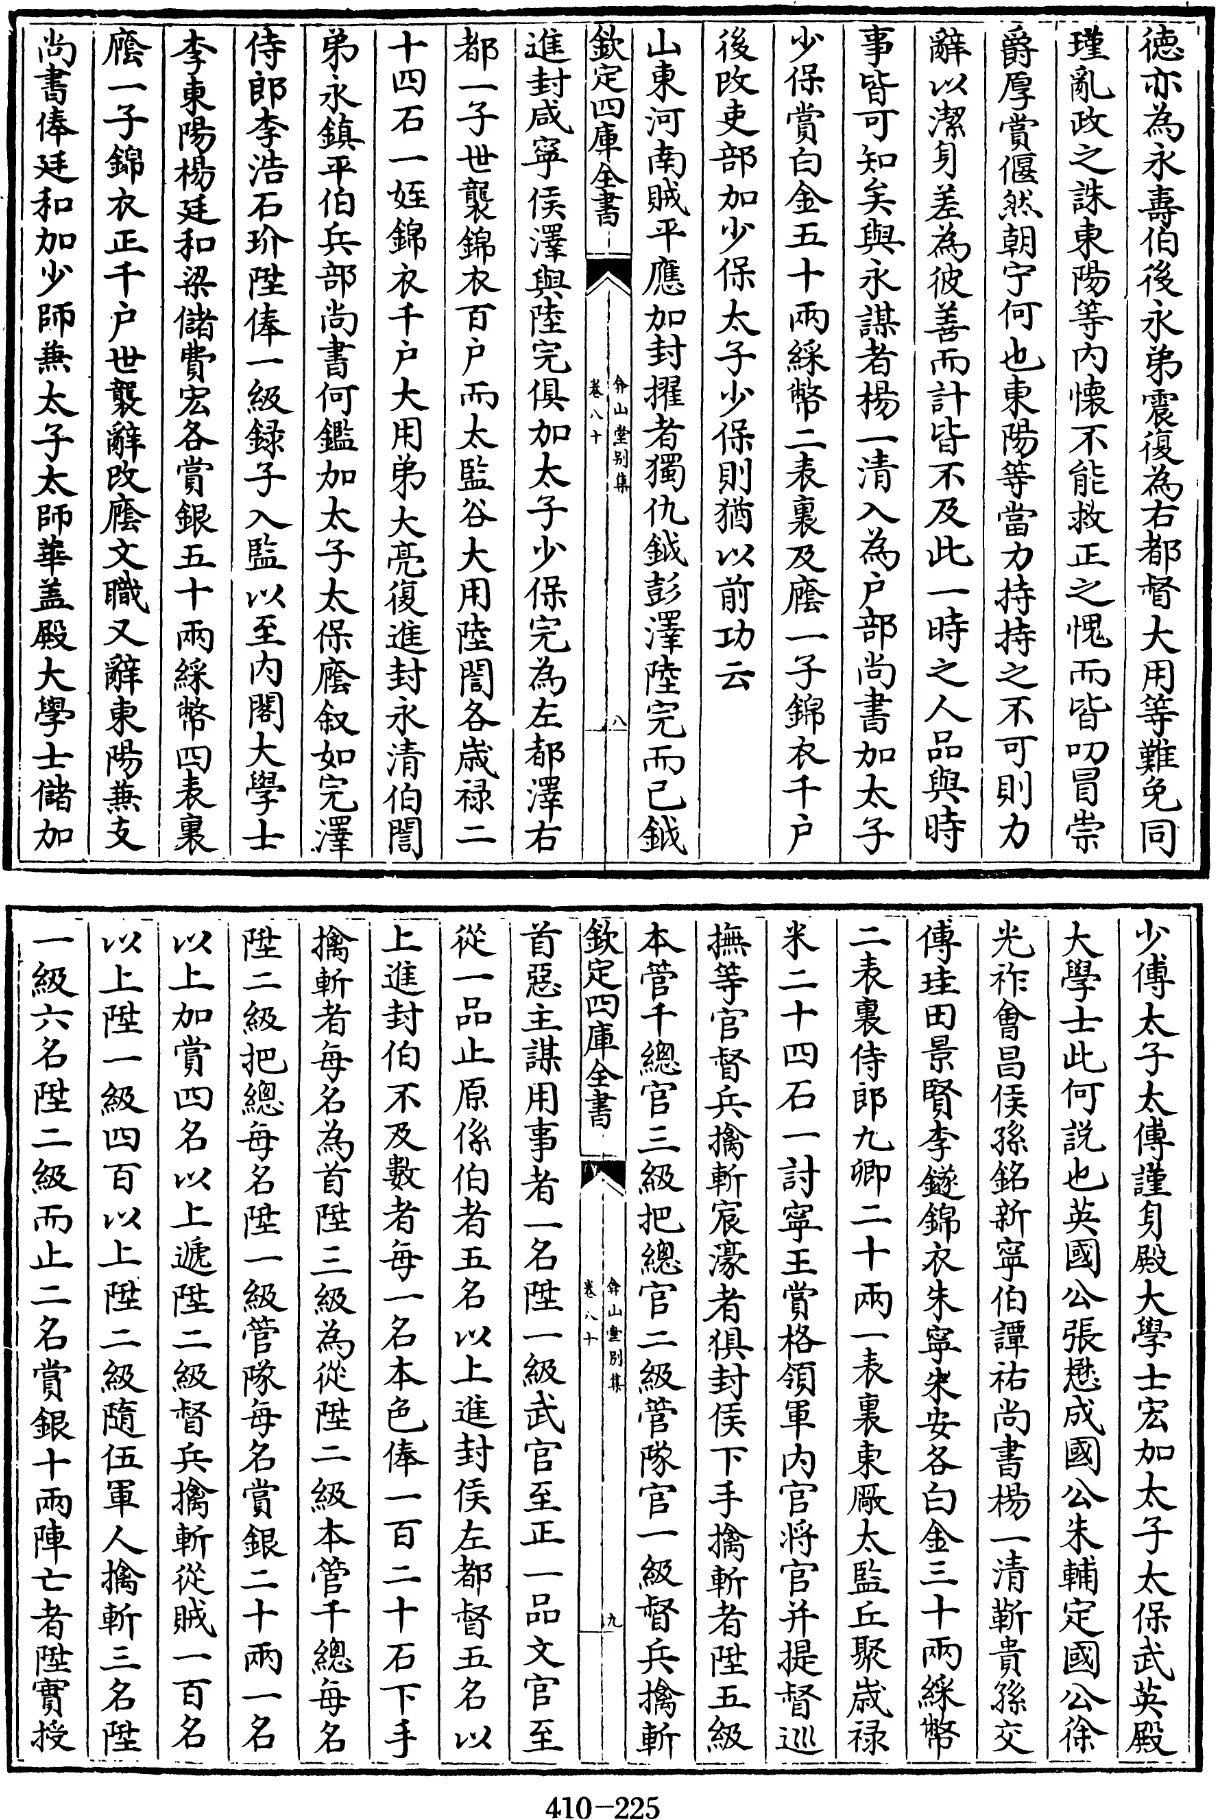 德亦為永壽伯後永弟震復為右都督大用等難免同
瑾亂政之誅東陽等内懐不能救正之愧而皆叨冒崇
爵厚賞偃然朝宁何也東陽等當力持持之不可則力
辭以潔身差為彼善而計皆不及此一時之人品與時
事皆可知矣與永謀者楊一清入為户部尚書加太子
少保賞白金五十兩綵幣二表裏及廕一子錦衣千户
後改吏部加少保太子少保則猶以前功云
山東河南賊平應加封擢者獨仇鉞彭澤陸完而已鉞
欽定四庫全書
弇山堂别集
卷八十
八
進封咸寧侯澤與陸完俱加太子少保完為左都澤右
都一子世襲錦衣百户而太監谷大用陸誾各歳禄二
十四石一姪錦衣千户大用弟大亮復進封永清伯誾
弟永鎮平伯兵部尚書何鑑加太子太保廕叙如完澤
侍郎李浩石玠陞俸一級録子入監以至内閣大學士
李東陽楊廷和梁儲費宏各賞銀五十兩綵幣四表裏
廕一子錦衣正千户世襲辭改廕文職又辭東陽兼支
尚書俸廷和加少師兼太子太師華盖殿大學士儲加
少傅太子太傅謹身殿大學士宏加太子太保武英殿
大學士此何説也英國公張懋成國公朱輔定國公徐
光祚會昌侯孫銘新寧伯譚祐尚書楊一清靳貴孫交
傅珪田景賢李鐩錦衣朱寧朱安各白金三十兩綵幣
二表裏侍郎九卿二十兩一表裏東厰太監丘聚歳禄
米二十四石一討寧王賞格領軍内官將官并提督巡
撫等官督兵擒斬宸濠者俱封侯下手擒斬者陞五級
本管千總官三級把總官二級管隊官一級督兵擒斬
欽定四庫全書
弇山堂别集
卷八十
九
首惡主謀用事者一名陞一級武官至正一品文官至
從一品止原係伯者五名以上進封侯左都督五名以
上進封伯不及數者每一名本色俸一百二十石下手
擒斬者每名為首陞三級為從陞二級本管千總每名
陞二級把總每名陞一級管隊每名賞銀二十兩一名
以上加賞四名以上遞陞二級督兵擒斬從賊一百名
以上陞一級四百以上陞二級隨伍軍人擒斬三名陞
一級六名陞二級而止二名賞銀十兩陣亡者陞實授
410-225